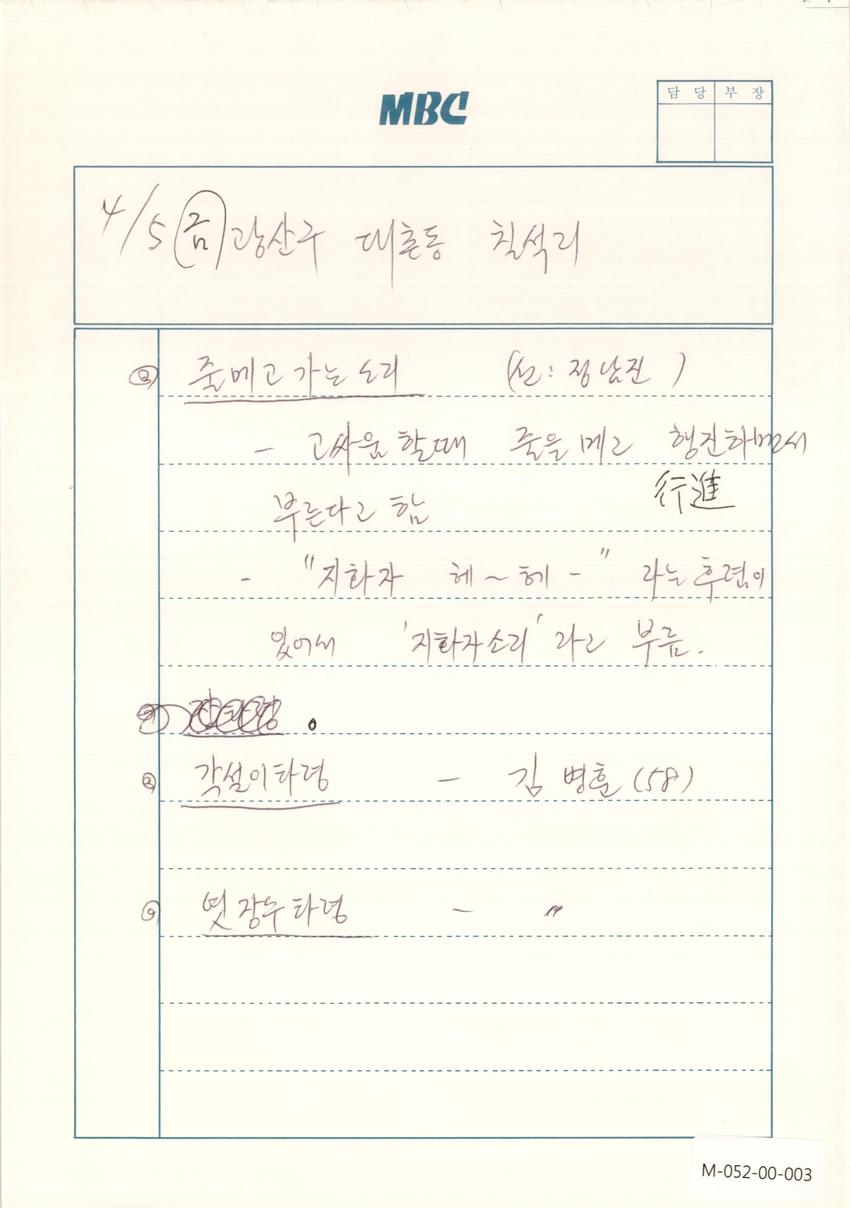 MBC
담 당 부 장
4/5 (금) 광산구 대촌동 칠석리
줄메고 가는 소리 (선: 정남진)
- 고싸움 할때 줄을 메고 행진하면서
行進
부른다고 함
- "지화자 헤~헤-" 라는 후렴이
있어서 '지화자소리' 라고 부름.
각설이타령 - 김병훈(58)
엿장수타령 - 〃
M-052-00-003